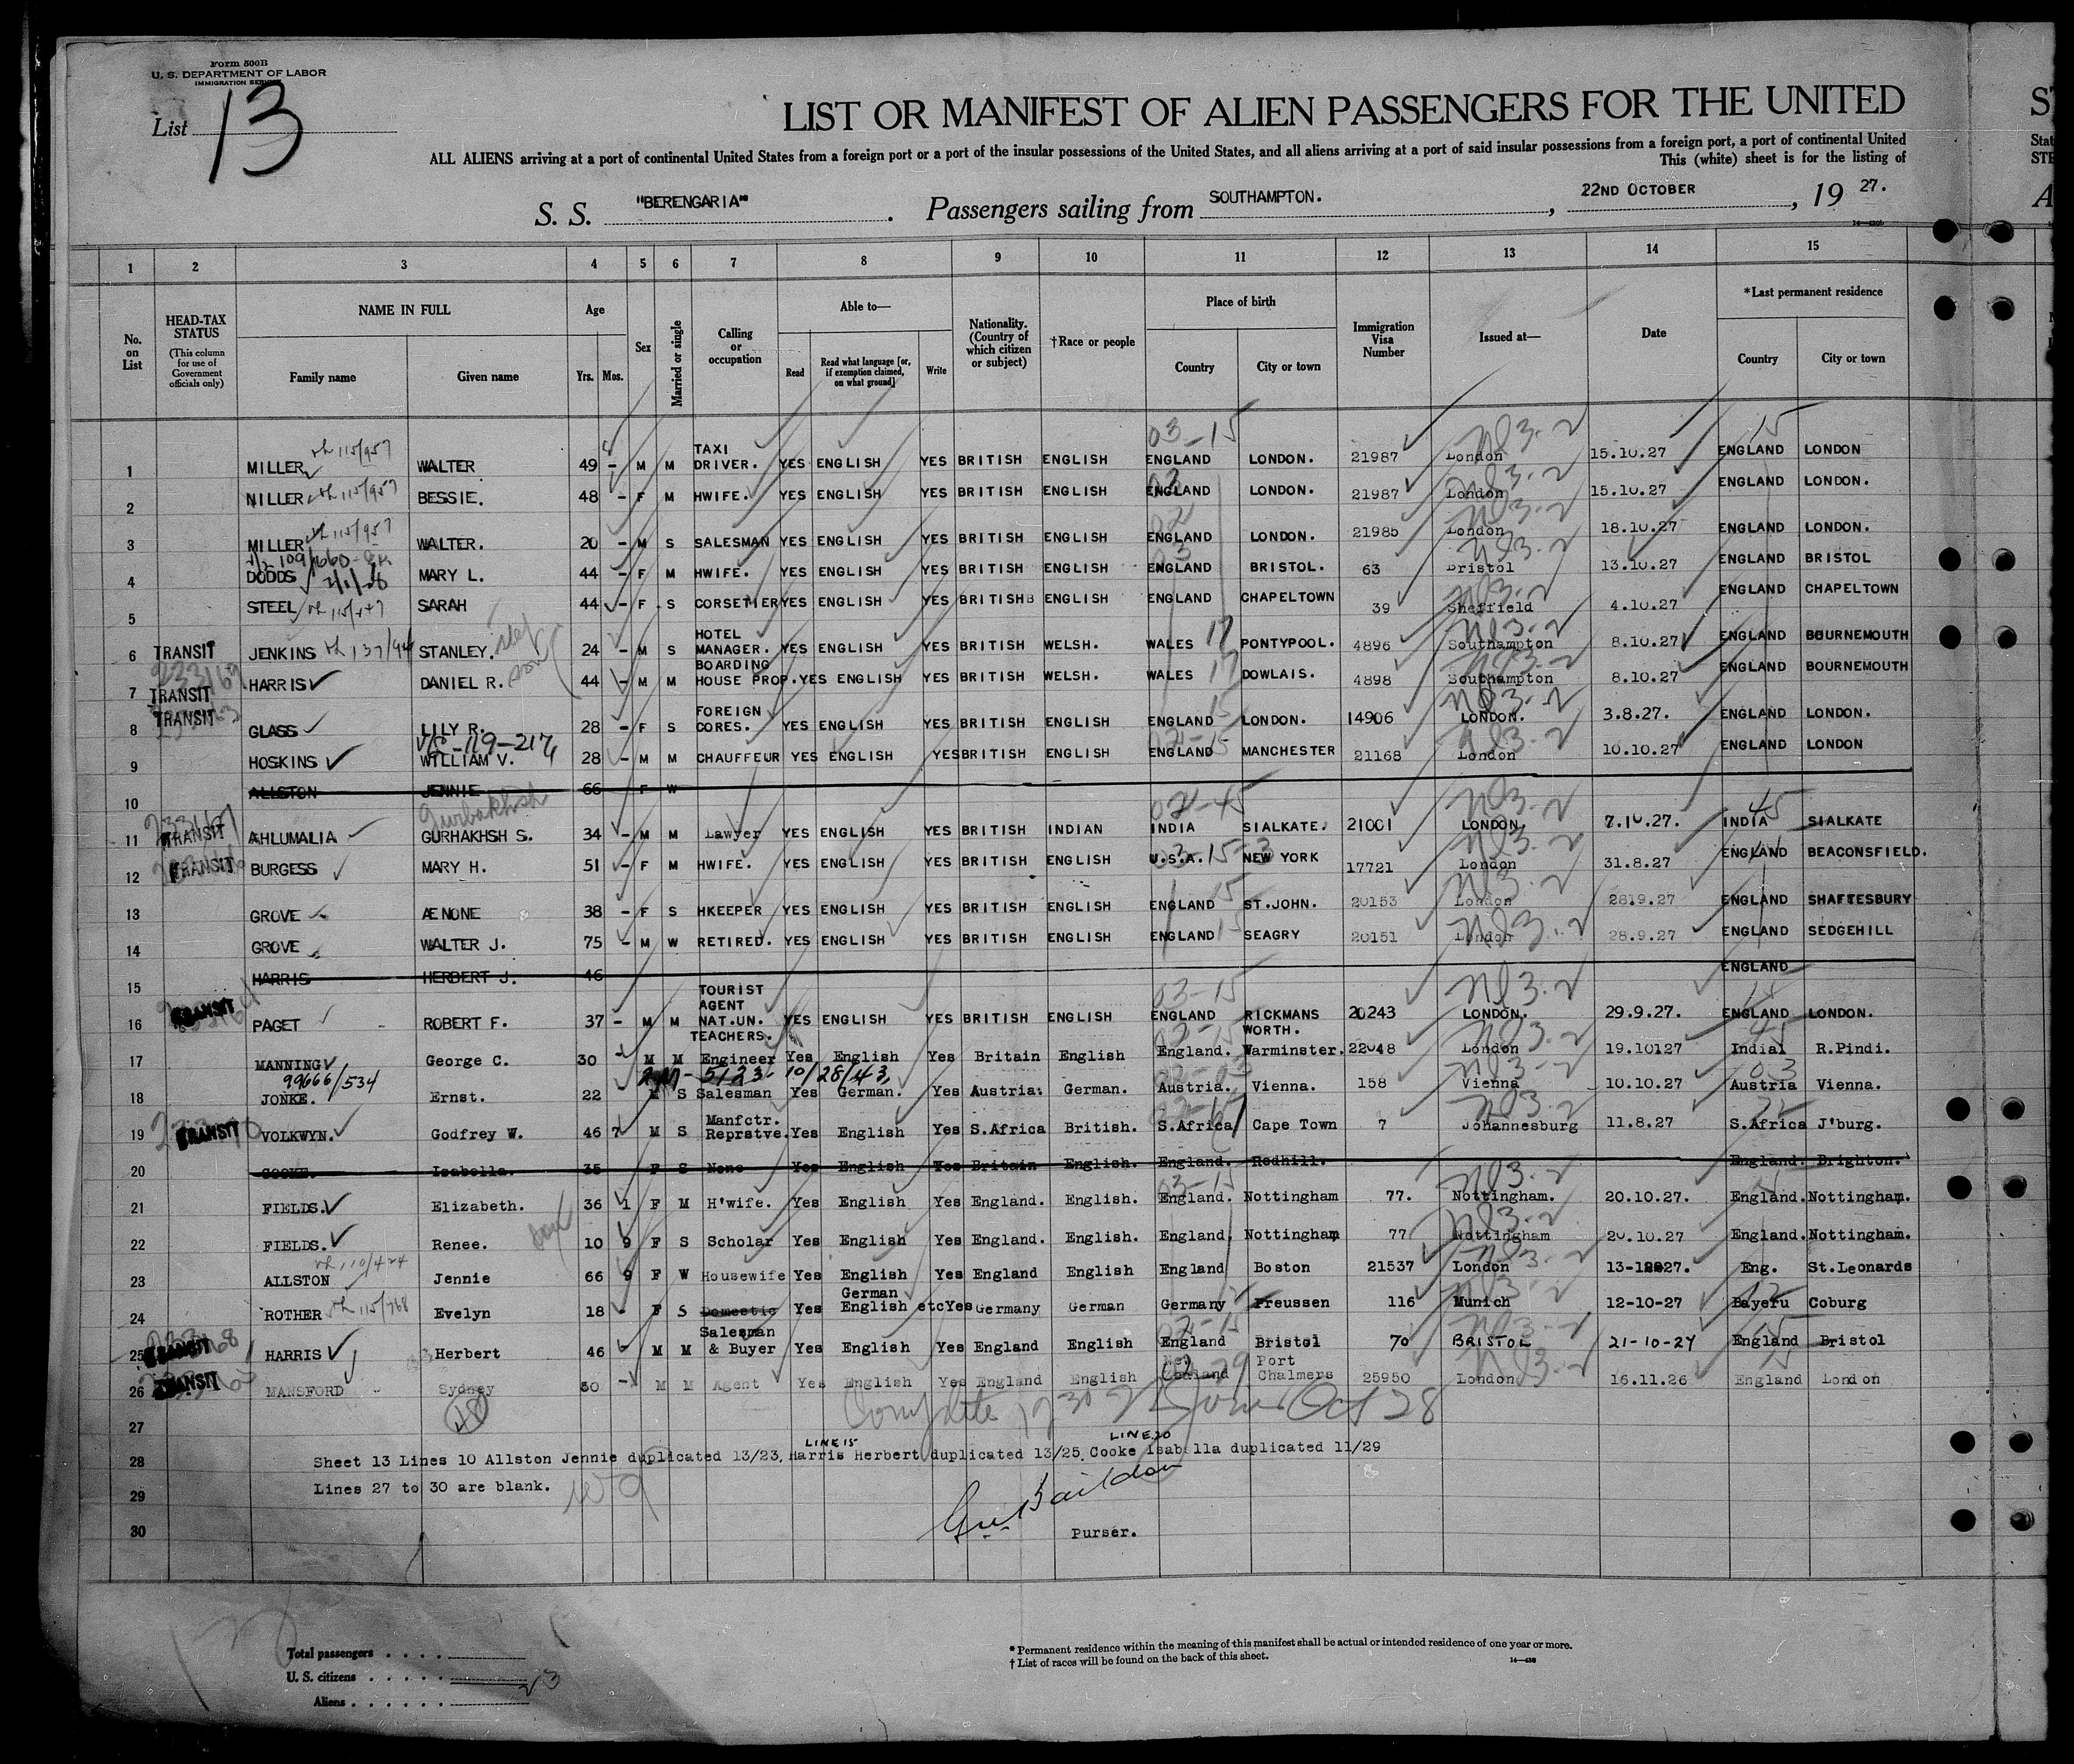 Form 500B
U. S. DEPARTMENT OF LABOR
IMMIGRATION SERVICE
List 13
LIST OR MANIFEST OF ALIEN PASSENGERS FOR THE UNITED
ALL ALIENS arriving at a port of continental United States from a foreign port or a port of the insular possessions of the United States, and all aliens arriving at a port of said insular possessions from a foreign port, a port of continental United
This (white) sheet is for the listing of
S. S. "BERENGARIA" . Passengers sailing from SOUTHAMPTON. , 22ND OCTOBER , 19 27.
1 2 3 4 5 6 7 8 9 10 11 12 13 14 15
No. on List HEAD-TAX STATUS (This column for use of Government officials only) NAME IN FULL Family name Given name Age Yrs. Mos. Sex Married or single Calling or occupation Able to— Read Read what language [or, if exemption claimed, on what ground] Write Nationality. (Country of which citizen or subject) †Race or people Place of birth Country City or town Immigration Visa Number Issued at— Date *Last permanent residence Country City or town
1 MILLER WALTER 49 - M M TAXI DRIVER. YES ENGLISH YES BRITISH ENGLISH ENGLAND LONDON. 21987 London 15.10.27 ENGLAND LONDON
2 NILLER BESSIE. 48 - F M HWIFE. YES ENGLISH YES BRITISH ENGLISH ENGLAND LONDON. 21987 London 15.10.27 ENGLAND LONDON.
3 MILLER WALTER. 20 - M S SALESMAN YES ENGLISH YES BRITISH ENGLISH ENGLAND LONDON. 21985 London 18.10.27 ENGLAND LONDON.
4 DODDS MARY L. 44 - F M HWIFE. YES ENGLISH YES BRITISH ENGLISH ENGLAND BRISTOL. 63 Bristol 13.10.27 ENGLAND BRISTOL
5 STEEL SARAH 44 - F S CORSETIER YES ENGLISH YES BRITISH ENGLISH ENGLAND CHAPELTOWN 39 Sheffield 4.10.27 ENGLAND CHAPELTOWN
6 TRANSIT JENKINS STANLEY. 24 - M S HOTEL MANAGER. YES ENGLISH YES BRITISH WELSH. WALES 17 PONTYPOOL. 4896 Southampton 8.10.27 ENGLAND BOURNEMOUTH
7 TRANSIT HARRIS DANIEL R. 44 - M M BOARDING HOUSE PROP. YES ENGLISH YES BRITISH WELSH. WALES 17 DOWLAIS. 4898 Southampton 8.10.27 ENGLAND BOURNEMOUTH
8 TRANSIT GLASS LILY R. 28 - F S FOREIGN CORES. YES ENGLISH YES BRITISH ENGLISH ENGLAND LONDON. 14906 LONDON. 3.8.27. ENGLAND LONDON.
9 HOSKINS WILLIAM V. 28 - M M CHAUFFEUR YES ENGLISH YES BRITISH ENGLISH ENGLAND MANCHESTER 21168 London 10.10.27 ENGLAND LONDON
10 ALLSTON JENNIE 66 F W
Gurbakhsh
11 TRANSIT AHLUMALIA GURHAKHSH S. 34 - M M Lawyer YES ENGLISH YES BRITISH INDIAN INDIA SIALKATE. 21001 LONDON. 7.10.27. INDIA SIALKATE
12 TRANSIT BURGESS MARY H. 51 - F M HWIFE. YES ENGLISH YES BRITISH ENGLISH U.S.A. NEW YORK 17721 London 31.8.27 ENGLAND BEACONSFIELD.
13 GROVE ÆNONE 38 - F S HKEEPER YES ENGLISH YES BRITISH ENGLISH ENGLAND ST.JOHN. 20153 London 2819.27 ENGLAND SHAFTESBURY
14 GROVE WALTER J. 75 - M W RETIRED. YES ENGLISH YES BRITISH ENGLISH ENGLAND SEAGRY 20151 London 28.9.27 ENGLAND SEDGEHILL
15 HARRIS HERBERT J. 46 ENGLAND
16 TRANSIT PAGET ROBERT F. 37 - M M TOURIST AGENT NAT.UN. TEACHERS. YES ENGLISH YES BRITISH ENGLISH ENGLAND RICKMANS WORTH. 20243 LONDON. 29.9.27. ENGLAND LONDON.
17 MANNING George C. 30 - M M Engineer Yes English Yes Britain English England. Warminster. 22048 London 19.10127 India1 R.Pindi.
99666/534 5123- 10/28/43
18 JONKE. Ernst. 22 - M S Salesman Yes German. Yes Austria. German. Austria. Vienna. 158 Vienna 10.10.27 Austria Vienna.
19 TRANSIT VOLKWYN. Godfrey W. 46 7 M S Manfctr. Reprstve. Yes English Yes S.Africa British. S.Africa Cape Town 7 Johannesburg 11.8.27 S.Africa J'burg.
20 COOKE. Isabella. 35 F S None Yes English Yes Britain English. England. Redhill. England. Brighton.
21 FIELDS. Elizabeth. 36 1 F M H'wife. Yes English Yes England. English. England. Nottingham 77. Nottingham. 20.10.27. England. Nottingham.
22 FIELDS. Renee. 10 9 F S Scholar Yes English Yes England. English. England. Nottingham 77 Nottingham 20.10.27 England. Nottingham.
23 ALLSTON Jennie 66 9 F W Housewife Yes English Yes England English England Boston 21537 London Eng. St.Leonards
24 ROTHER Evelyn 18 - F S Domestic Yes German English etc Yes Germany German Germany Preussen 116 Munich 12-10-27 Bayeru Coburg
25 TRANSIT HARRIS Herbert 46 M M Salesman & Buyer Yes English Yes England English England Bristol 70 BRISTOL 21-10-27 England Bristol
26 TRANSIT MANSFORD Sydney 50 - M M Agent Yes English Yes England English Port Chalmers 25950 London 16.11.26 England London
27 Complete Oct 28
LINE 15 LINE 20
28 Sheet 13 Lines 10 Allston Jennie duplicated 13/23, Harris Herbert duplicated 13/25. Cooke Isabella duplicated 11/29
29 Lines 27 to 30 are blank.
30 Purser.
Total passengers
U. S. citizens
Aliens
23
* Permanent residence within the meaning of this manifest shall be actual or intended residence of one year or more.
† List of races will be found on the back of this sheet.